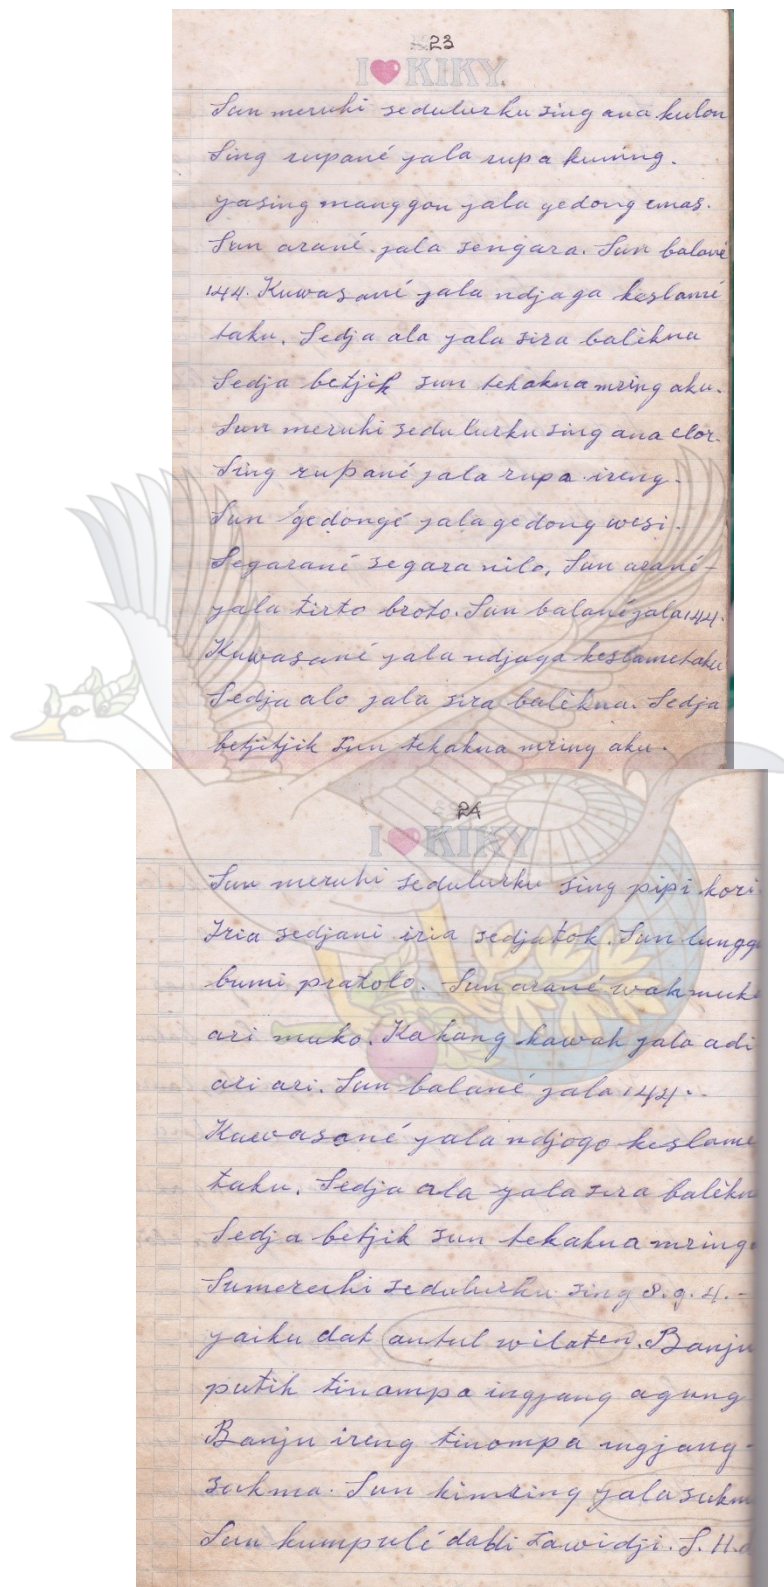 23
I ❤ KIKY
Sun meruhi sedulurku sing ana kulon
Sing rupané jala rupa kuning.
jasing manggon jala gedong emas.
Sun arané jala sengara. Sun balané
144. Kuwasané jala ndjaga keslamé
taku. Sedja ala jala sira balèkna
Sedja betjik sun tekakna mring aku.
Sun meruhi sedulurku sing ana elor.
Sing rupané jala rupa ireng.
Sun gedongé jala gedong wesi.
Segarané segara nilo. Sun arané-
jala tirto broto. Sun balané jala 144.
Kuwasané jala ndjaga keslametaku
Sedja alo jala sira balèkna. Sedja
betjitjik sun tekakna mring aku.
24
I ❤ KIKY
Sun meruhi sedulurku sing pipi kori
Iria sedjani iria sedjatok. Sun lungg
bumi pratolo. Sun arané wah muk
ari muko. Kakang kawah jala adi
ari ari. Sun balané jala 144.
Kuwasané jala ndjogo keslame
taku. Sedja ala jala sira balèkn
Sedja betjik sun tekakna mring
Sumeruhi sedulurku sing 8.9.4.-
yaiku dat antul wilaten. Banju
putih tinampa ingjang agung
Banju ireng tinompa ingjang-
sukma. Sun kimring jala sukm
Sun kumpulé dabdi sawidji. S.H.